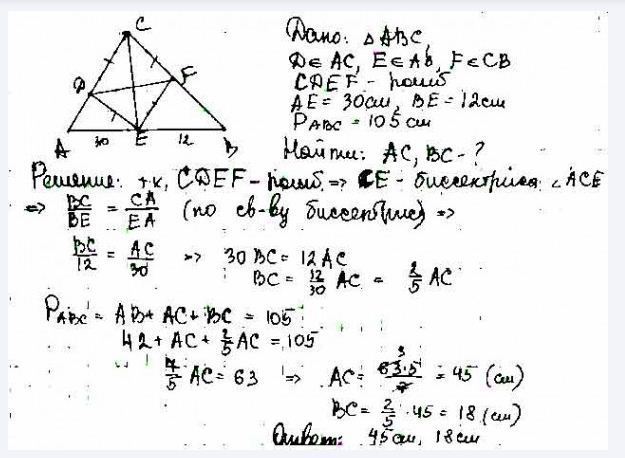 C
D
F
A
30
E
12
B
Дано: △ABC,
D∈AC, E∈AB, F∈CB
CDEF - ромб
AE = 30см, BE = 12см
P_ABC = 105 см
Найти: AC, BC - ?
Решение: т.к. CDEF - ромб => CE - биссектриса ∠ACE
=> BC/BE = CA/EA (по св-ву биссектрис) =>
BC/12 = AC/30 => 30 BC = 12 AC
BC = 12/30 AC = 2/5 AC
P_ABC = AB + AC + BC = 105
42 + AC + 2/5 AC = 105
7/5 AC = 63 => AC = 63·5/7 = 45 (см)
3
BC = 2/5 · 45 = 18 (см)
Ответ: 45см, 18см